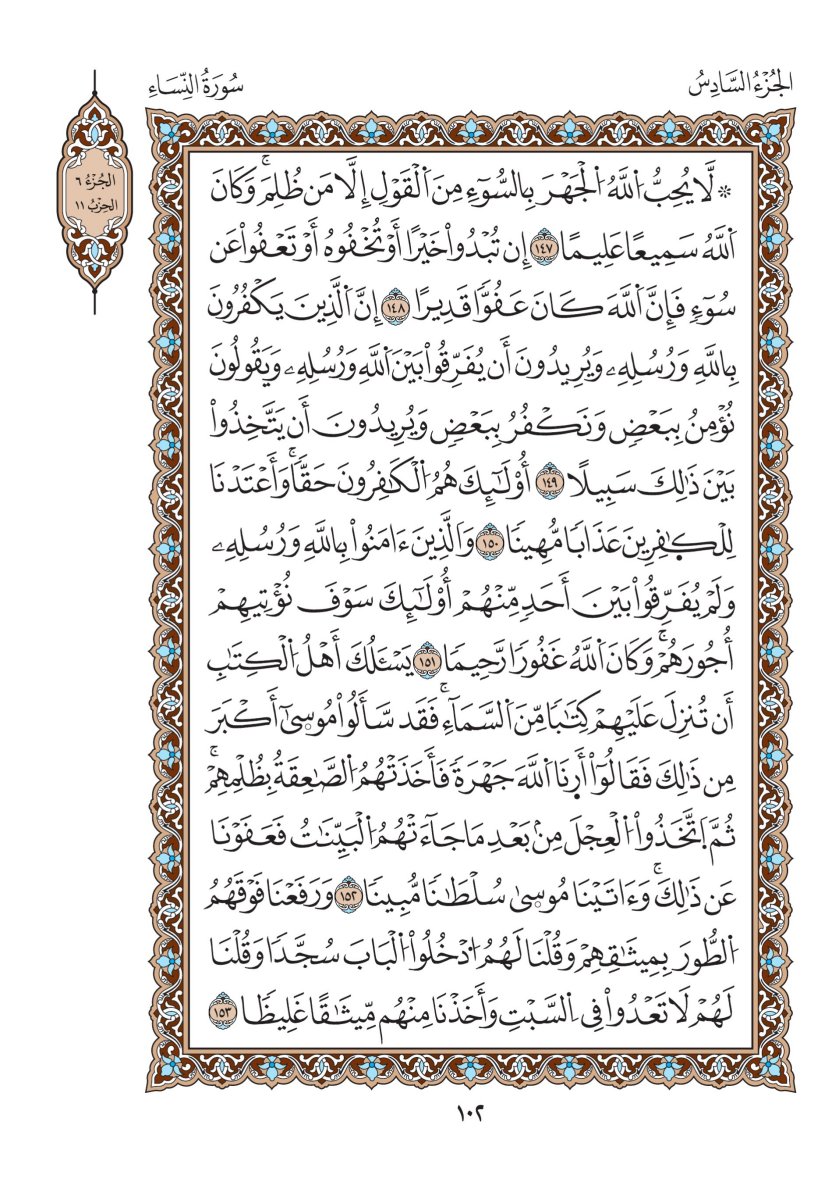 الجُزْءُ السَّادِسُ
سُورَةُ النِّسَاءِ
الجُزْءُ ٦
الحِزْبُ ١١
۞ لَّا يُحِبُّ اُ۬للَّهُ اُ۬لْجَهْرَ بِالسُّوٓءِ مِنَ اَ۬لْقَوْلِ إِلَّا مَن ظُلِمَۚ وَكَانَ
اَ۬للَّهُ سَمِيعًا عَلِيمًا ١٤٧ إِن تُبْدُواْ خَيْرًا أَوْ تُخْفُوهُ أَوْ تَعْفُواْ عَن
سُوٓءٖ فَإِنَّ اَ۬للَّهَ كَانَ عَفُوّٗا قَدِيرًا ١٤٨ إِنَّ اَ۬لَّذِينَ يَكْفُرُونَ
بِاللَّهِ وَرُسُلِهِۦ وَيُرِيدُونَ أَن يُفَرِّقُواْ بَيْنَ اَ۬للَّهِ وَرُسُلِهِۦ وَيَقُولُونَ
نُؤْمِنُ بِبَعْضٖ وَنَكْفُرُ بِبَعْضٖ وَيُرِيدُونَ أَن يَتَّخِذُواْ
بَيْنَ ذَٰلِكَ سَبِيلًا ١٤٩ أُوْلَٰٓئِكَ هُمُ اُ۬لْكَٰفِرُونَ حَقّٗاۚ وَأَعْتَدْنَا
لِلْكٰٜفِرِينَ عَذَابٗا مُّهِينٗا ١٥٠ وَالَّذِينَ ءَامَنُواْ بِاللَّهِ وَرُسُلِهِۦ
وَلَمْ يُفَرِّقُواْ بَيْنَ أَحَدٖ مِّنْهُمْ أُوْلَٰٓئِكَ سَوْفَ نُؤْتِيهِمْ
أُجُورَهُمْۚ وَكَانَ اَ۬للَّهُ غَفُورٗا رَّحِيمٗا ١٥١ يَسْـَٔلُكَ أَهْلُ اُ۬لْكِتَٰبِ
أَن تُنزِلَ عَلَيْهِمْ كِتَٰبٗا مِّنَ اَ۬لسَّمَآءِۚ فَقَد سَّأَلُواْ مُوسۭيٰٓ أَكْبَرَ
مِن ذَٰلِكَ فَقَالُوٓاْ أَرِنَا اَ۬للَّهَ جَهْرَةٗ فَأَخَذَتْهُمُ اُ۬لصَّٰعِقَةُ بِظُلْمِهِمْۚ
ثُمَّ اَ۪تَّخَذُواْ اُ۬لْعِجْلَ مِنۢ بَعْدِ مَا جَآءَتْهُمُ اُ۬لْبَيِّنَٰتُ فَعَفَوْنَا
عَن ذَٰلِكَۚ وَءَاتَيْنَا مُوسۭيٰ سُلْطَٰنٗا مُّبِينٗا ١٥٢ وَرَفَعْنَا فَوْقَهُمُ
اُ۬لطُّورَ بِمِيثَٰقِهِمْ وَقُلْنَا لَهُمُ اُ۟دْخُلُواْ اُ۬لْبَابَ سُجَّدٗا وَقُلْنَا
لَهُمْ لَا تَعْدُواْ فِي اِ۬لسَّبْتِ وَأَخَذْنَا مِنْهُم مِّيثَٰقًا غَلِيظٗا ١٥٣
١٠٢